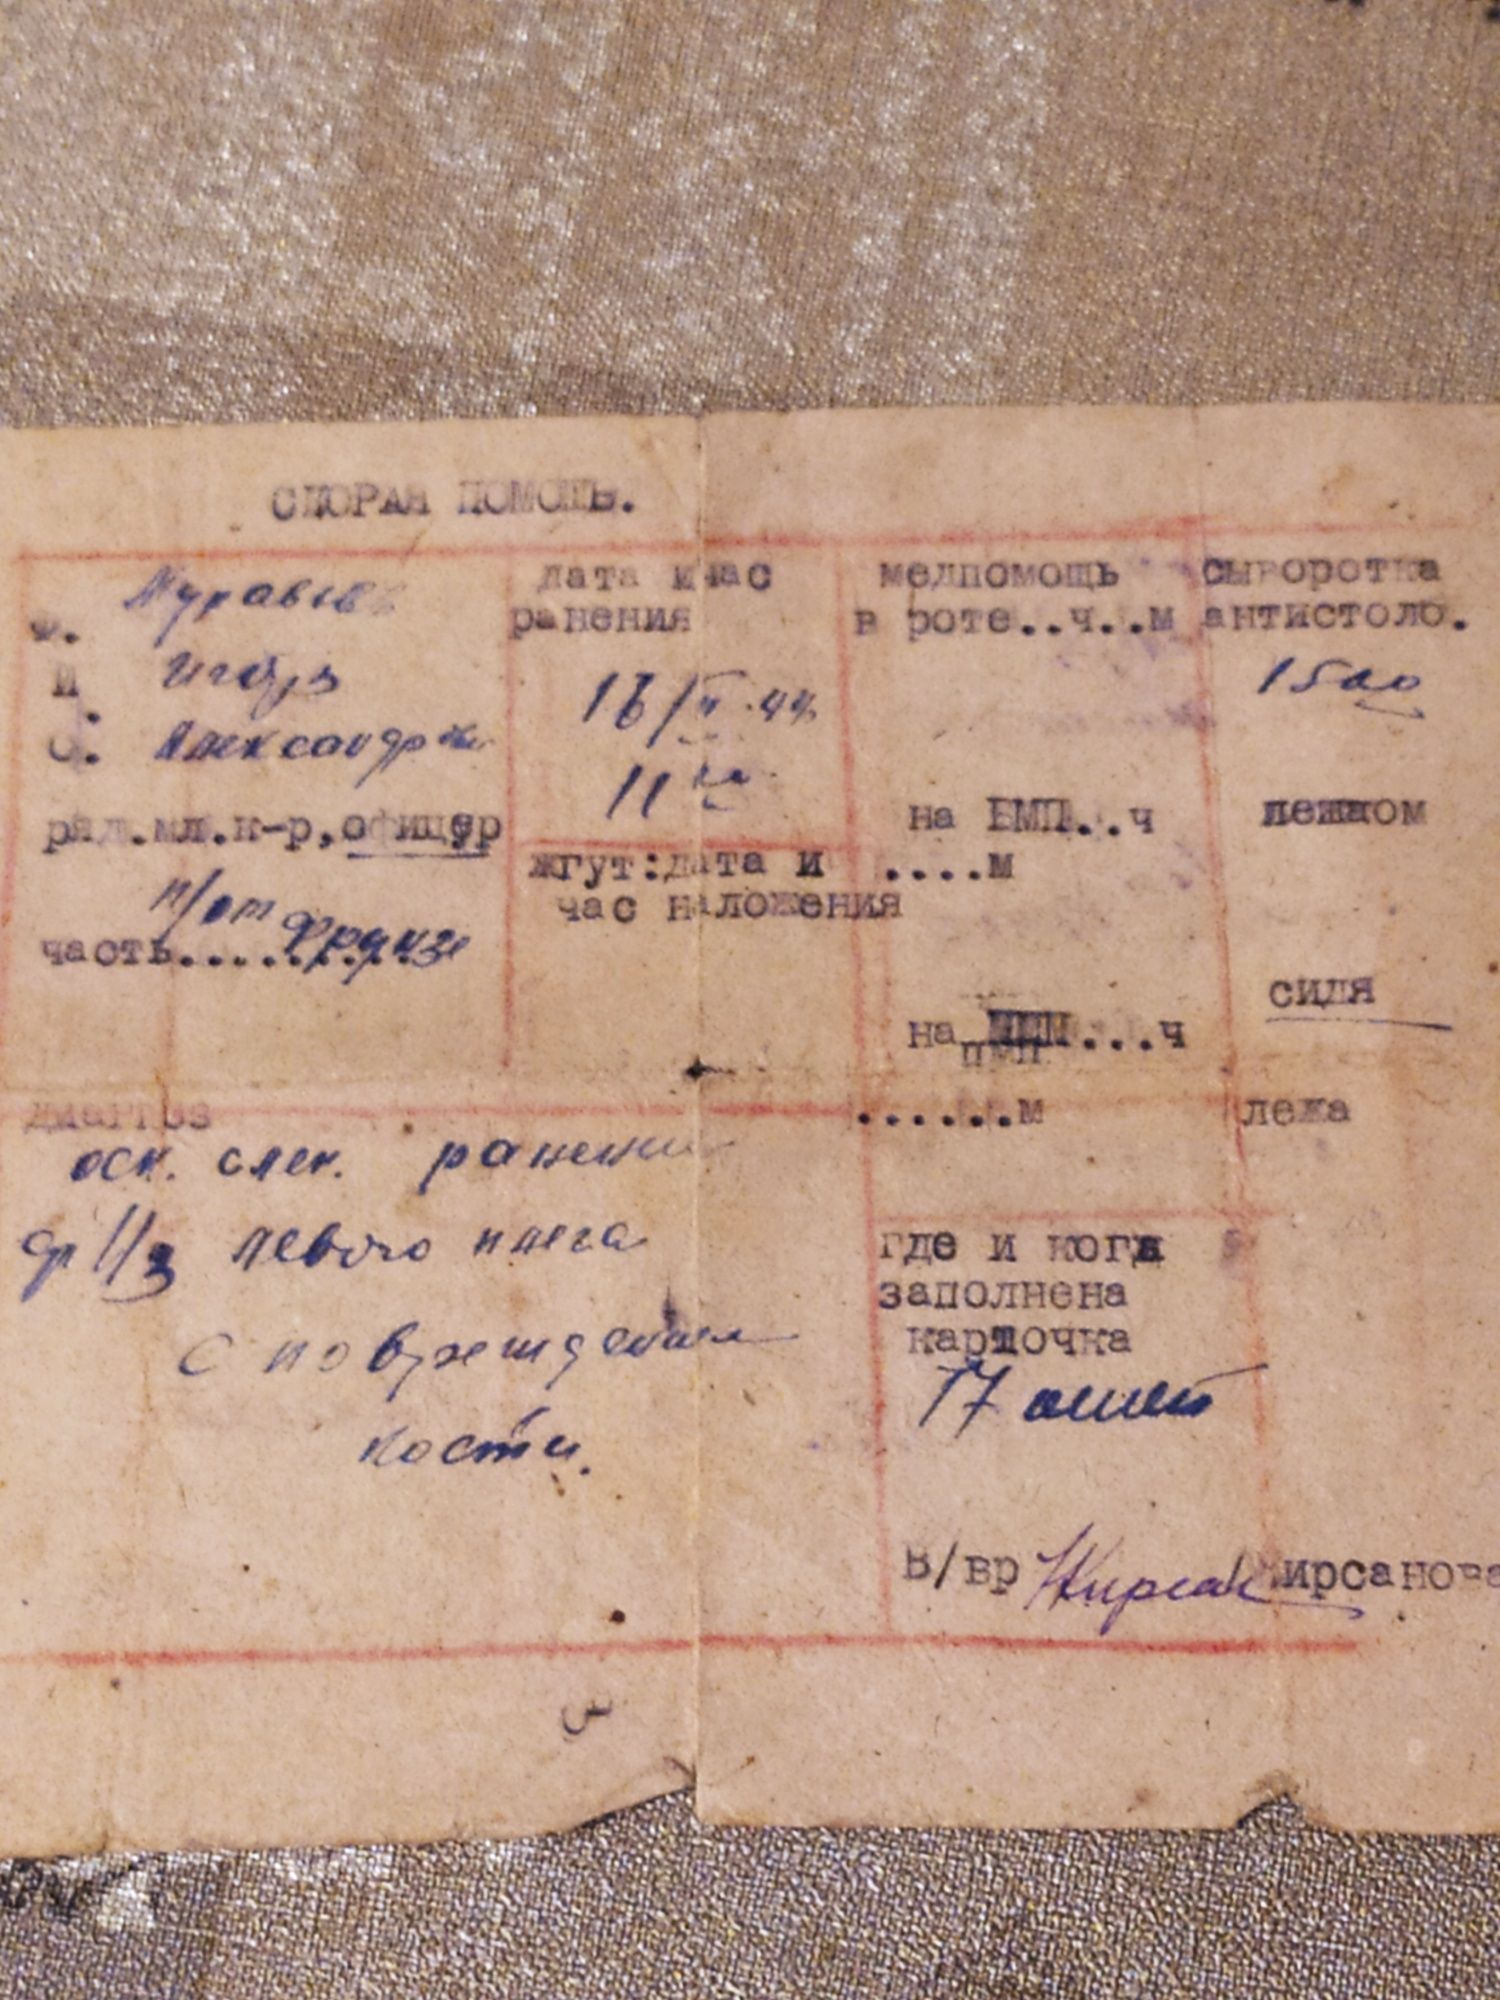 СКОРАЯ ПОМОЩЬ.
Ф. Муравьев
И. Игорь
О. Александр
ряд.мл.к-р,офицер
п/от Фрунзе
часть..........
дата и час
ранения
44
11
жгут:дата и
час наложения
медпомощь
в роте..ч..м
на БМП...ч
....м
на ПМП...ч
......м
сыворотка
антистолб.
1500
лежаком
сидя
лежа
диагноз
оск. слеп. ранение
ср 1/3 левого плеча
с повреждением
кости.
где и когда
заполнена
карточка
17
В/вр Кирсан /Кирсанова